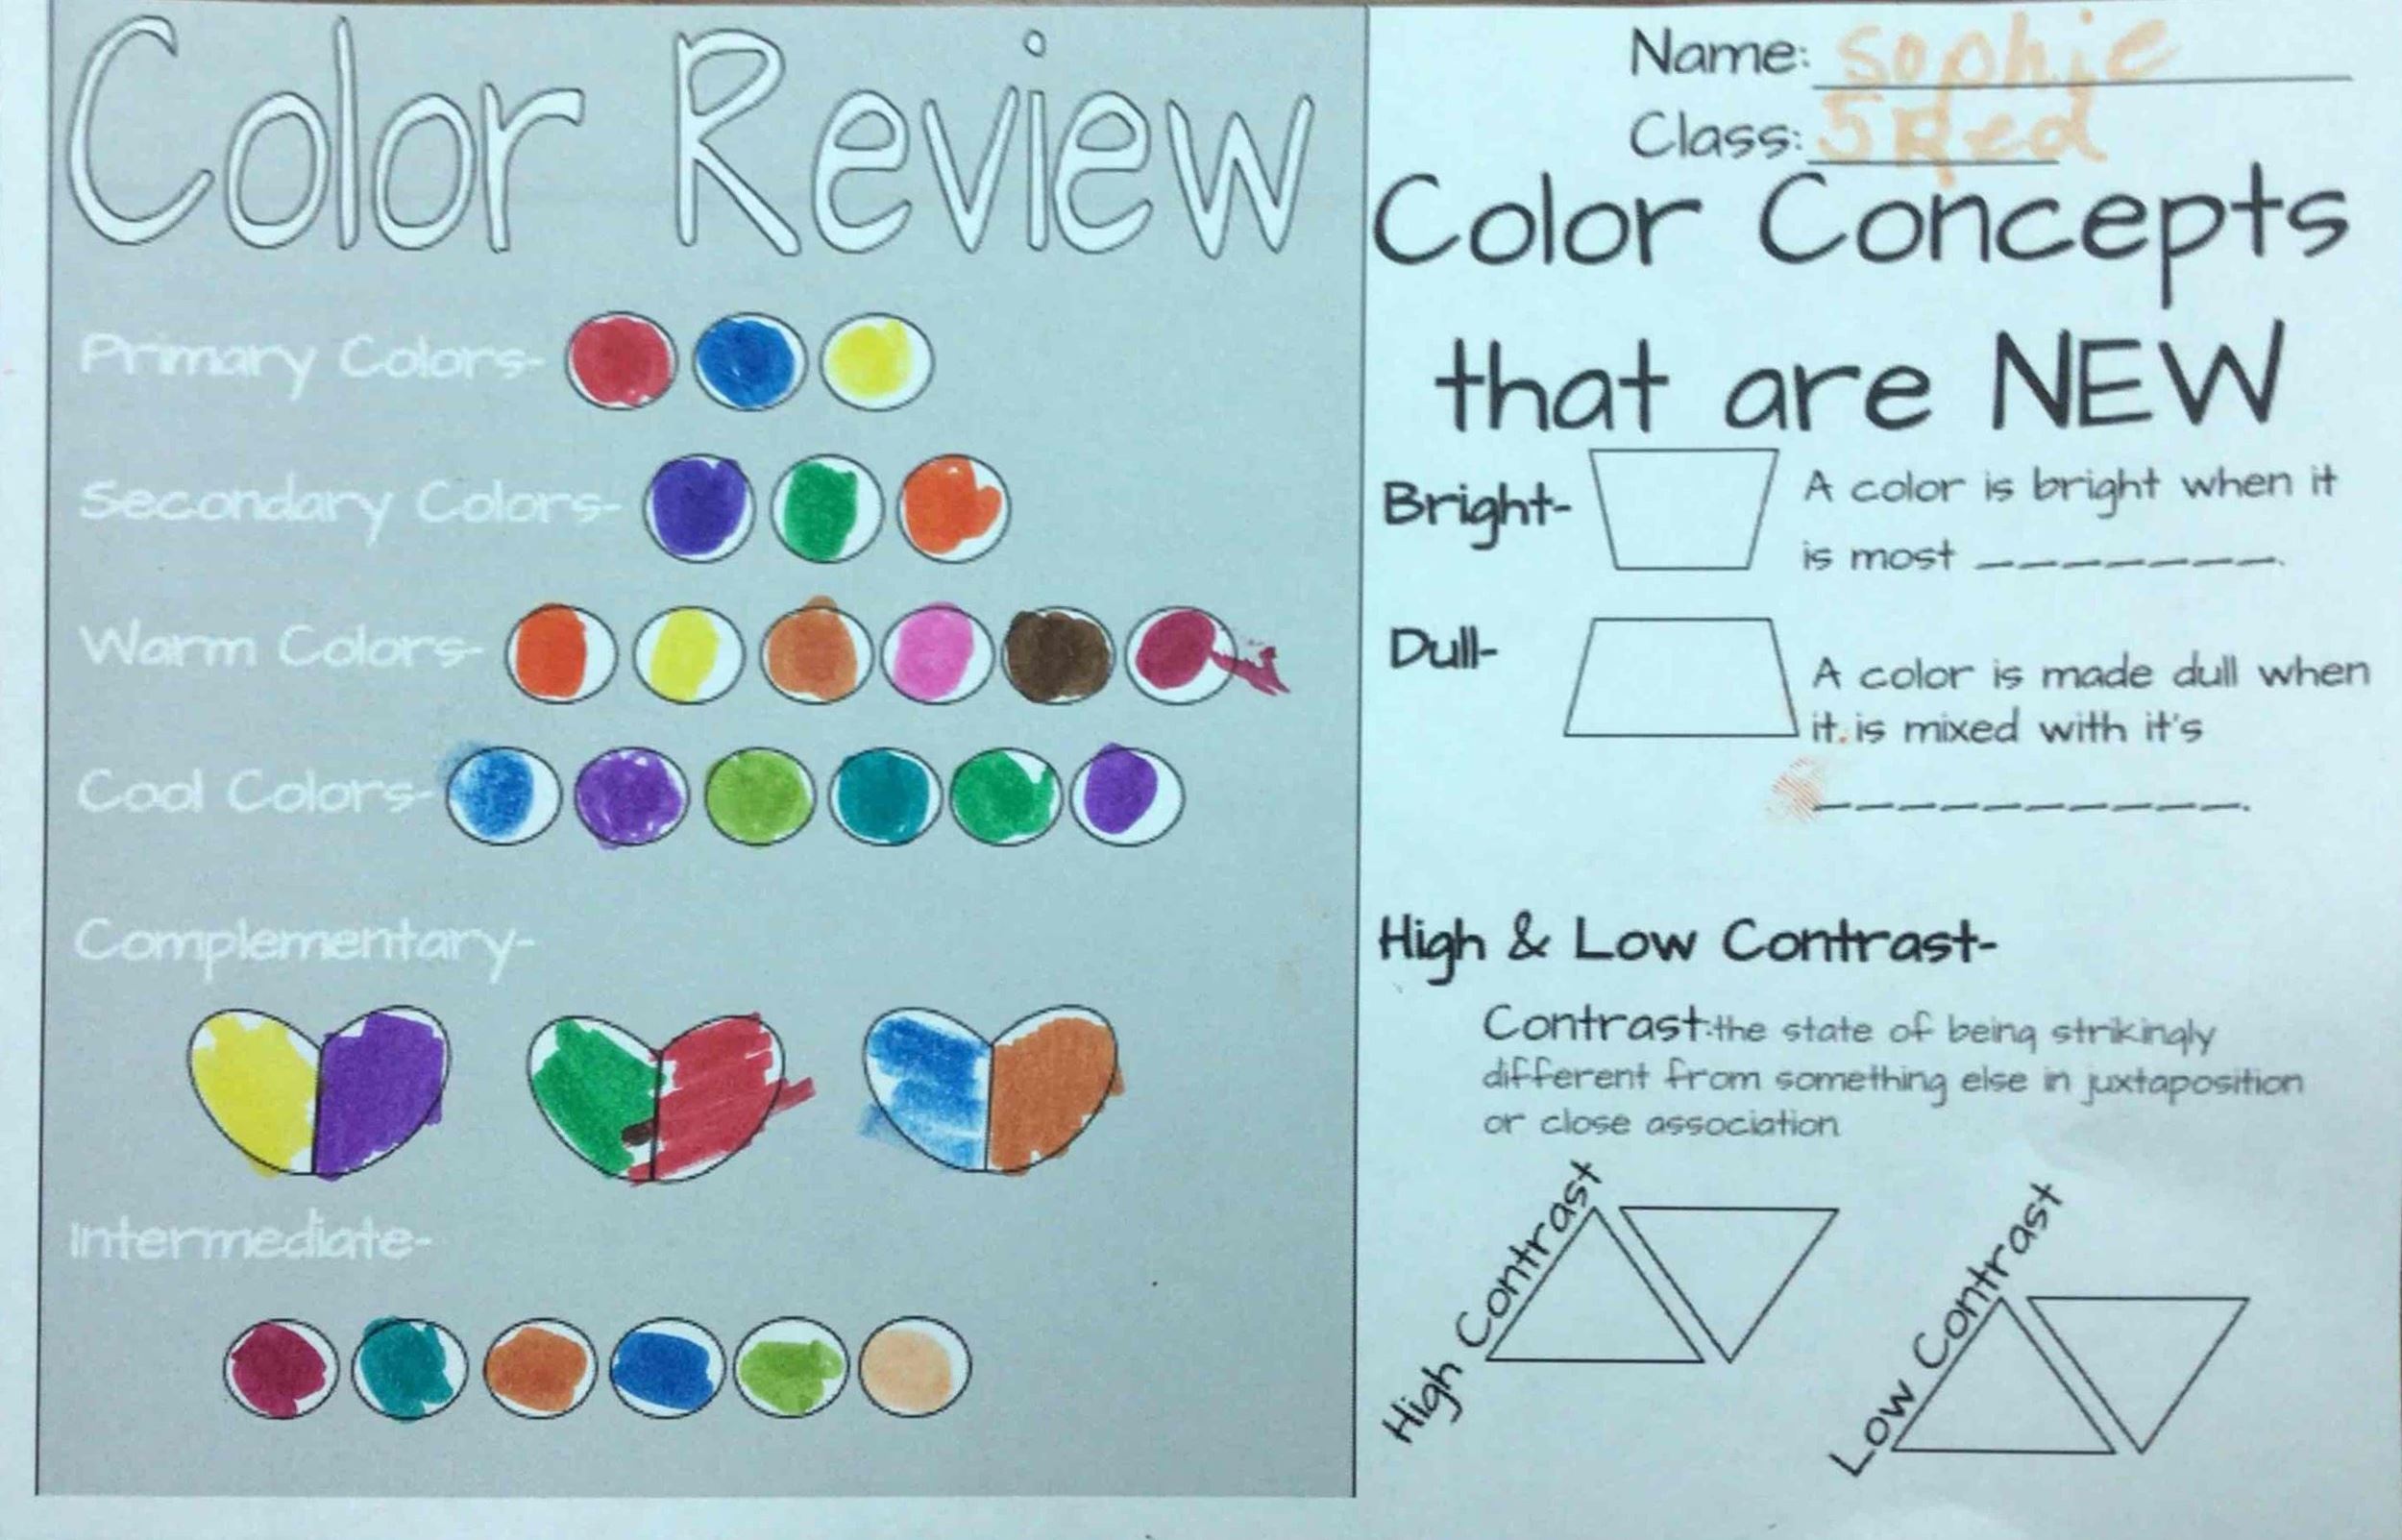 Color Review
Primary Colors-
Secondary Colors-
Warm Colors-
Cool Colors-
Complementary-
Intermediate-
Name: Sophie
Class: 5 Red
Color Concepts
that are NEW
Bright-
A color is bright when it
is most _ _ _ _ _ _ _.
Dull-
A color is made dull when
it is mixed with it's
_ _ _ _ _ _ _ _ _ _.
High & Low Contrast-
Contrast:the state of being strikingly
different from something else in juxtaposition
or close association
High Contrast
Low Contrast